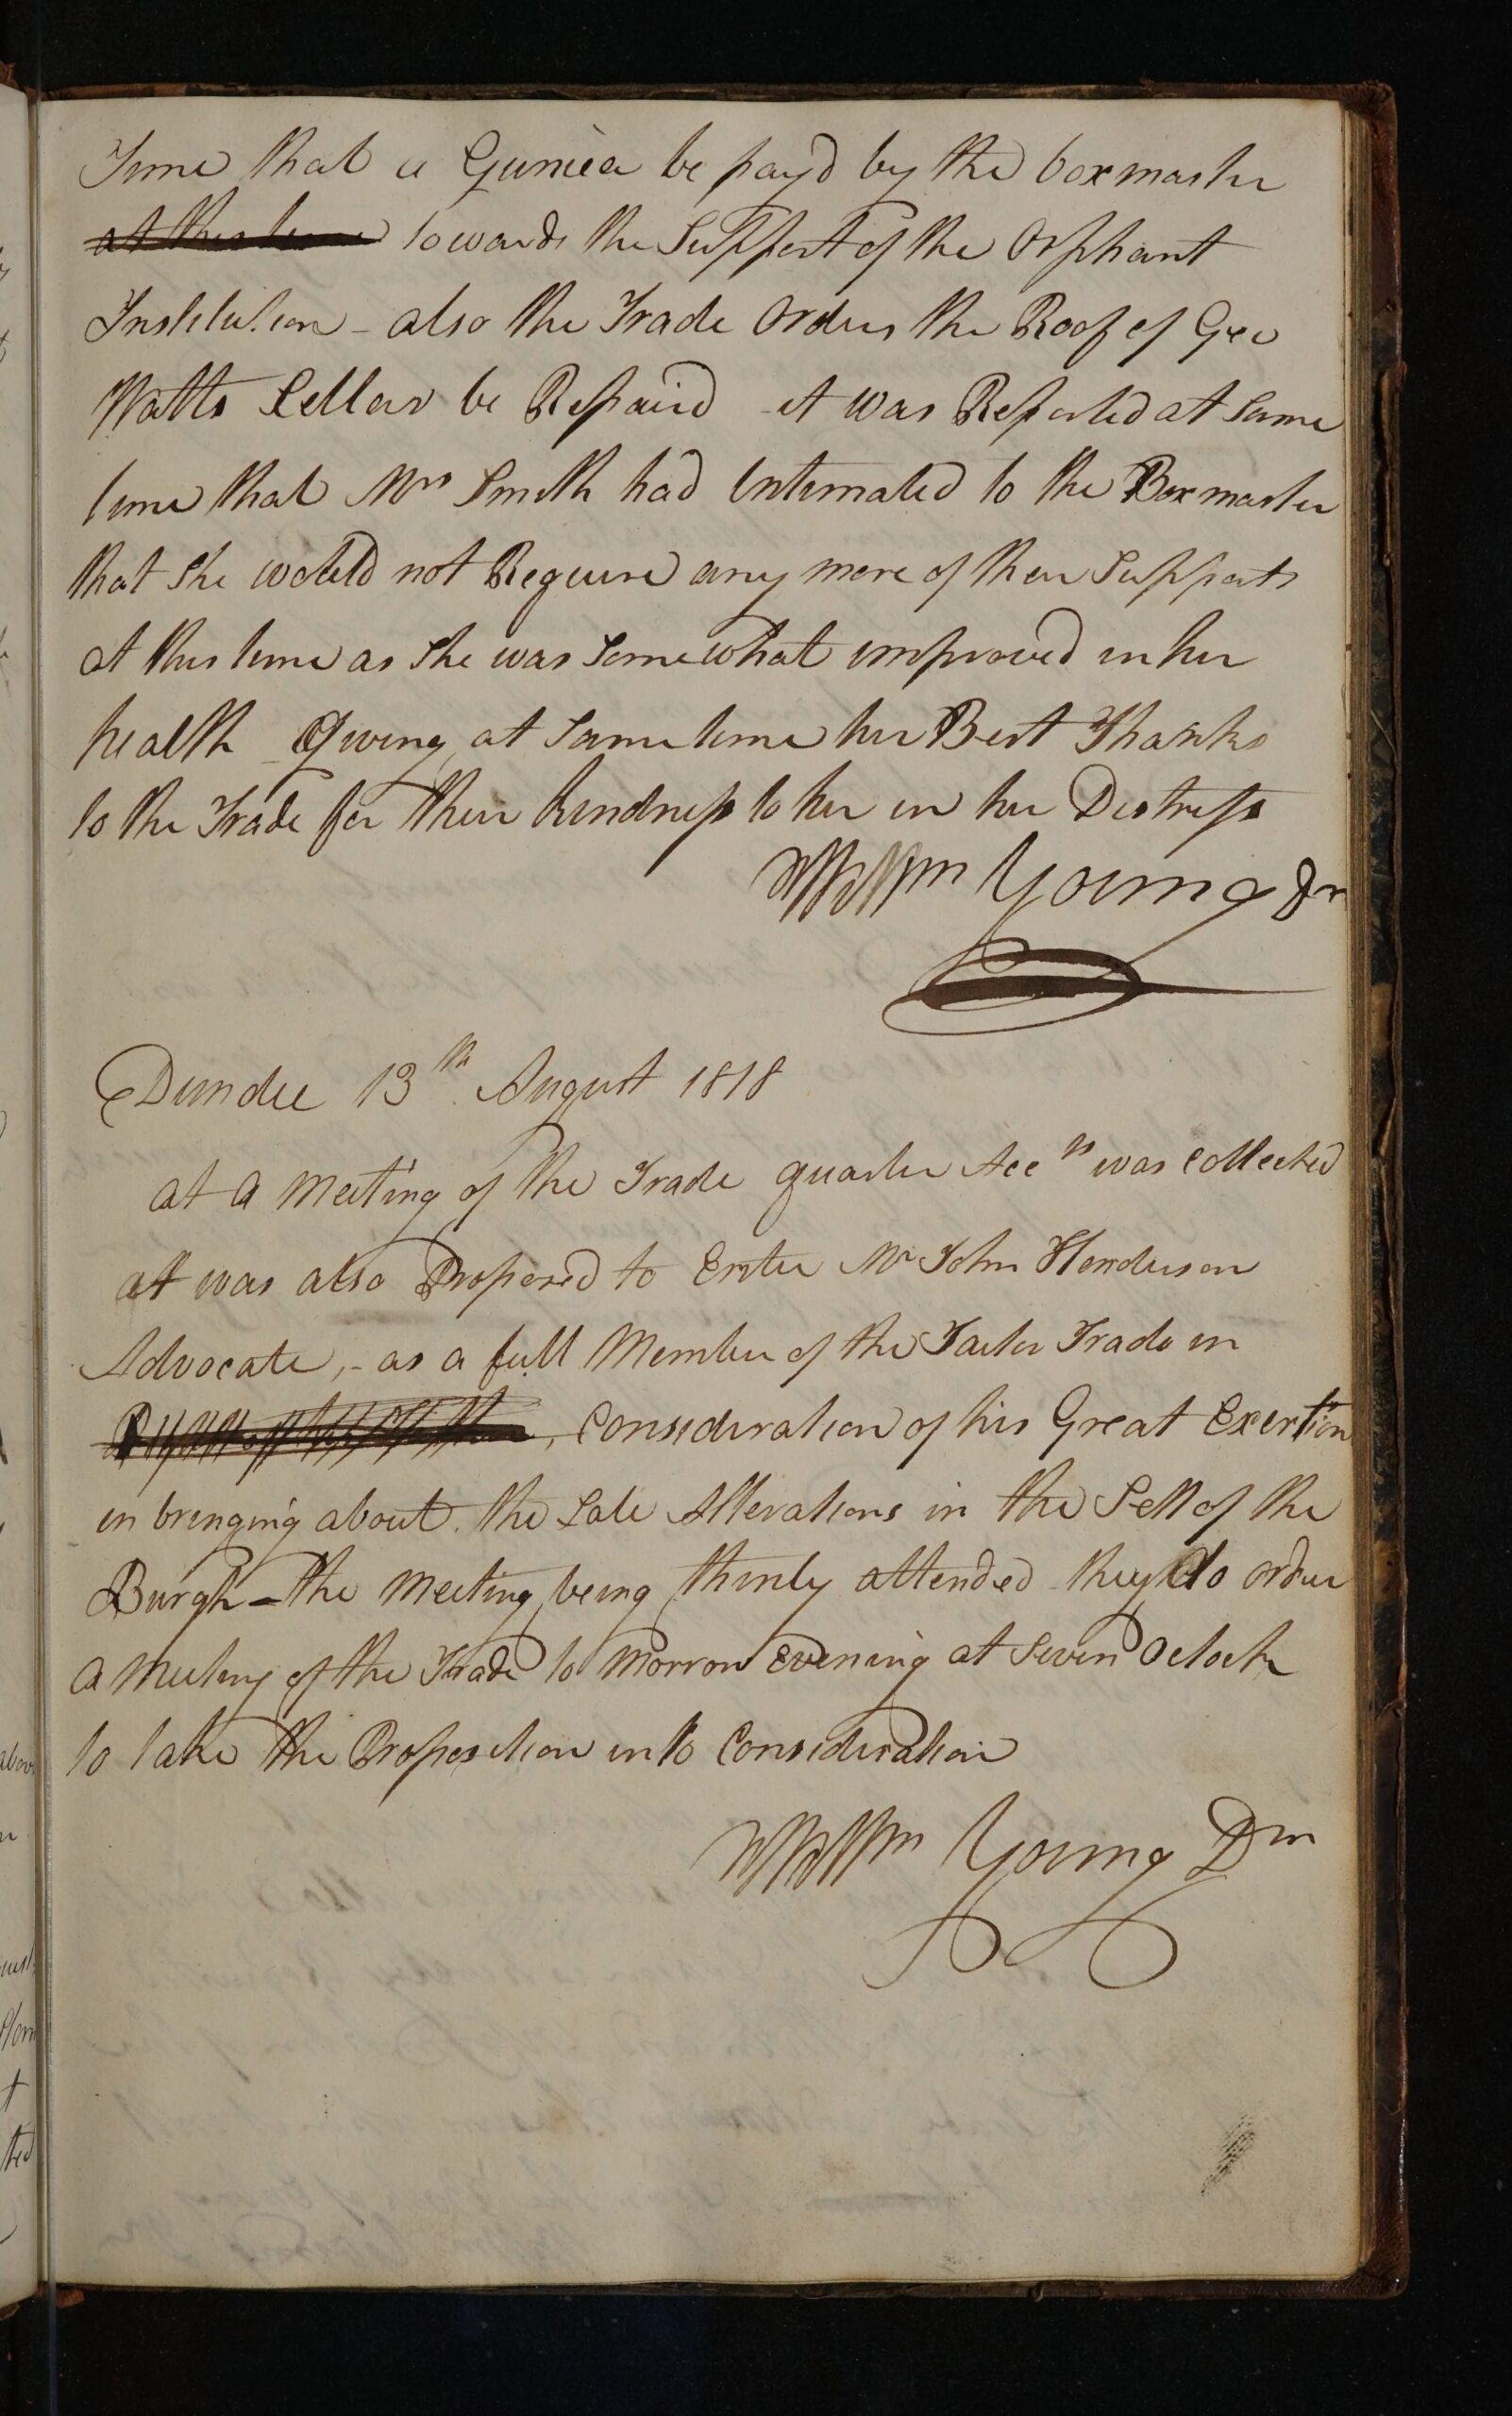 Time that a Guniea be payd by the boxmaster
at this time towards the Support of the Orphant
Institution - also the Trade Orders the Roof of Geo
Watts Sellar be Repaird - it was Reported at same
time that Mrs Smith had Intimated to the Boxmaster
that she would not Requre any more of their Supports
at this time as she was somewhat improved in her
health Giving at same time her Best Thanks
to the Trade for their kindness to her in her Distress
Willm Young Dn
Dundee 13th August 1818
at a meeting of the Trade quarter Accts was collected
at was also Proposed to Enter Mr John Henderson
Advocate, - as a full Member of the Tailor Trade in
, Consideration of his Great Exertion
in bringing about the Late Alterations in the Sett of the
Burgh - the meeting being thinly attended they do order
a meeting of the Trade to Morrow Evening at Seven Oclock
to take the Proposition into Consideration
Willm Young Dn